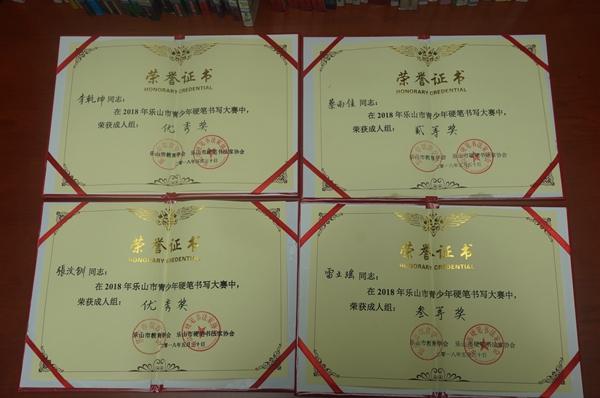 荣誉证书
HONORARY CREDENTIAL
李乾坤 同志:
在2018年乐山市青少年硬笔书写大赛中,
荣获成人组: 优秀奖
乐山市教育学会 乐山市硬笔书法家协会
二〇一八年五月三十日
荣誉证书
HONORARY CREDENTIAL
蔡雨佳 同志:
在2018年乐山市青少年硬笔书写大赛中,
荣获成人组: 贰等奖
乐山市教育学会 乐山市硬笔书法家协会
二〇一八年五月三十日
荣誉证书
HONORARY CREDENTIAL
張汶釧 同志:
在2018年乐山市青少年硬笔书写大赛中,
荣获成人组: 优秀奖
乐山市教育学会 乐山市硬笔书法家协会
二〇一八年五月三十日
荣誉证书
HONORARY CREDENTIAL
雷玉瑶 同志:
在2018年乐山市青少年硬笔书写大赛中,
荣获成人组: 叁等奖
乐山市教育学会 乐山市硬笔书法家协会
二〇一八年五月三十日